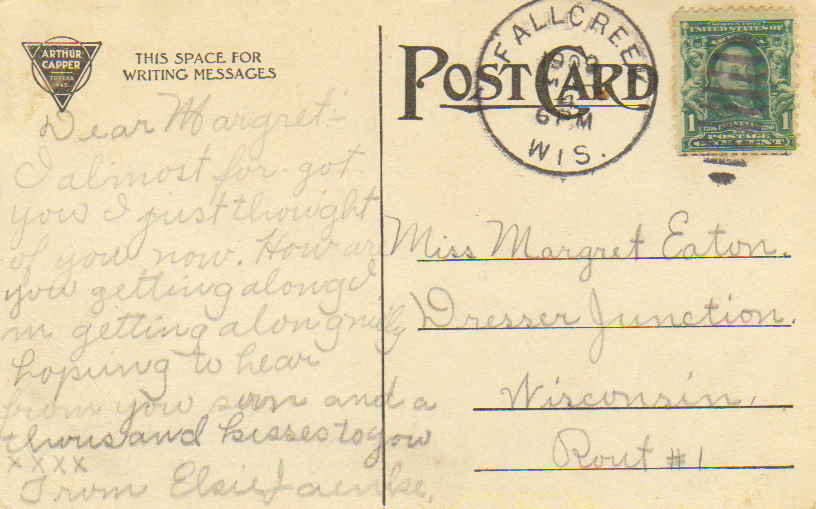 ARTHUR
CAPPER
TOPEKA
KAS.
THIS SPACE FOR
WRITING MESSAGES
POST CARD
FALL CREEK
6 PM
WIS.
UNITED STATES OF AMERICA
1 1
POSTAGE
ONE CENT
Dear Margret:-
I almost for got
you I just thought
of you now. How are
you getting along I
m getting along
hoping to hear
from you soon and a
thousand kisses to you
x x x x
From Elsie
Miss Margret Eaton.
Dresser Junction.
Wisconsin.
Rout #1